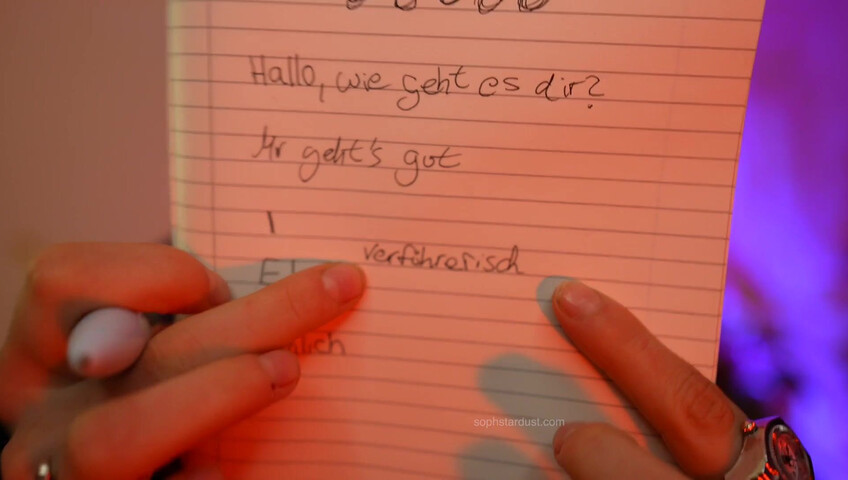 Hallo, wie geht es dir?
Mir geht's gut
verführerisch
sophstardust.com